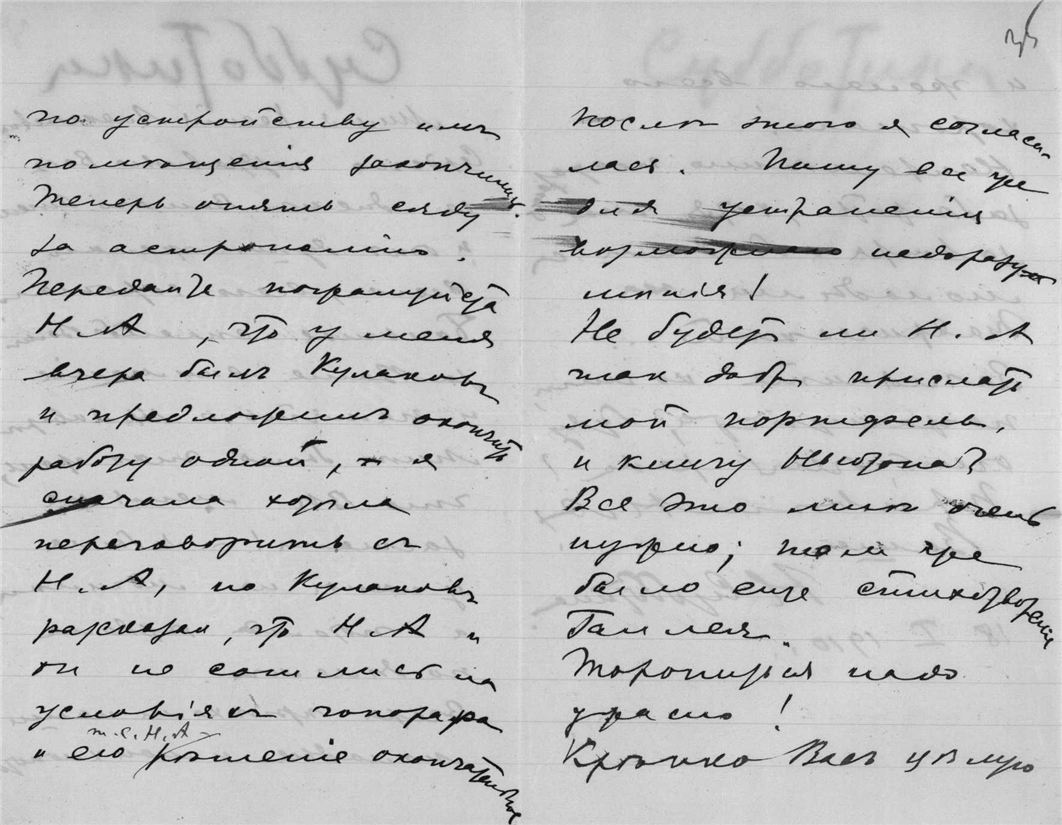 по устройству имъ
помѣщенія закончились.
Теперь опять сяду
за астрономію.
Передайте пожалуйста
Н. А, что у меня
вчера былъ Кулаковъ
и предложилъ окончить
работу одной, я
сначала хотѣла
переговорить съ
Н. А, но Кулаковъ
разсказал, что Н А и
он не сошлись на
условіяхъ гонорара
т. е. Н. А
и его рѣшеніе окончательное
Послѣ этого я согласи-
лась. Пишу все же
для устраненія
недоразу-
мѣнія!
Не будетъ ли Н. А
так добр прислать
мой портфель,
и книгу Ньютона?
Все это мнѣ очень
нужно; там же
было еще стихотвореніе
Галлея.
Торопиться надо
ужасно!
Крѣпко Васъ цѣлую